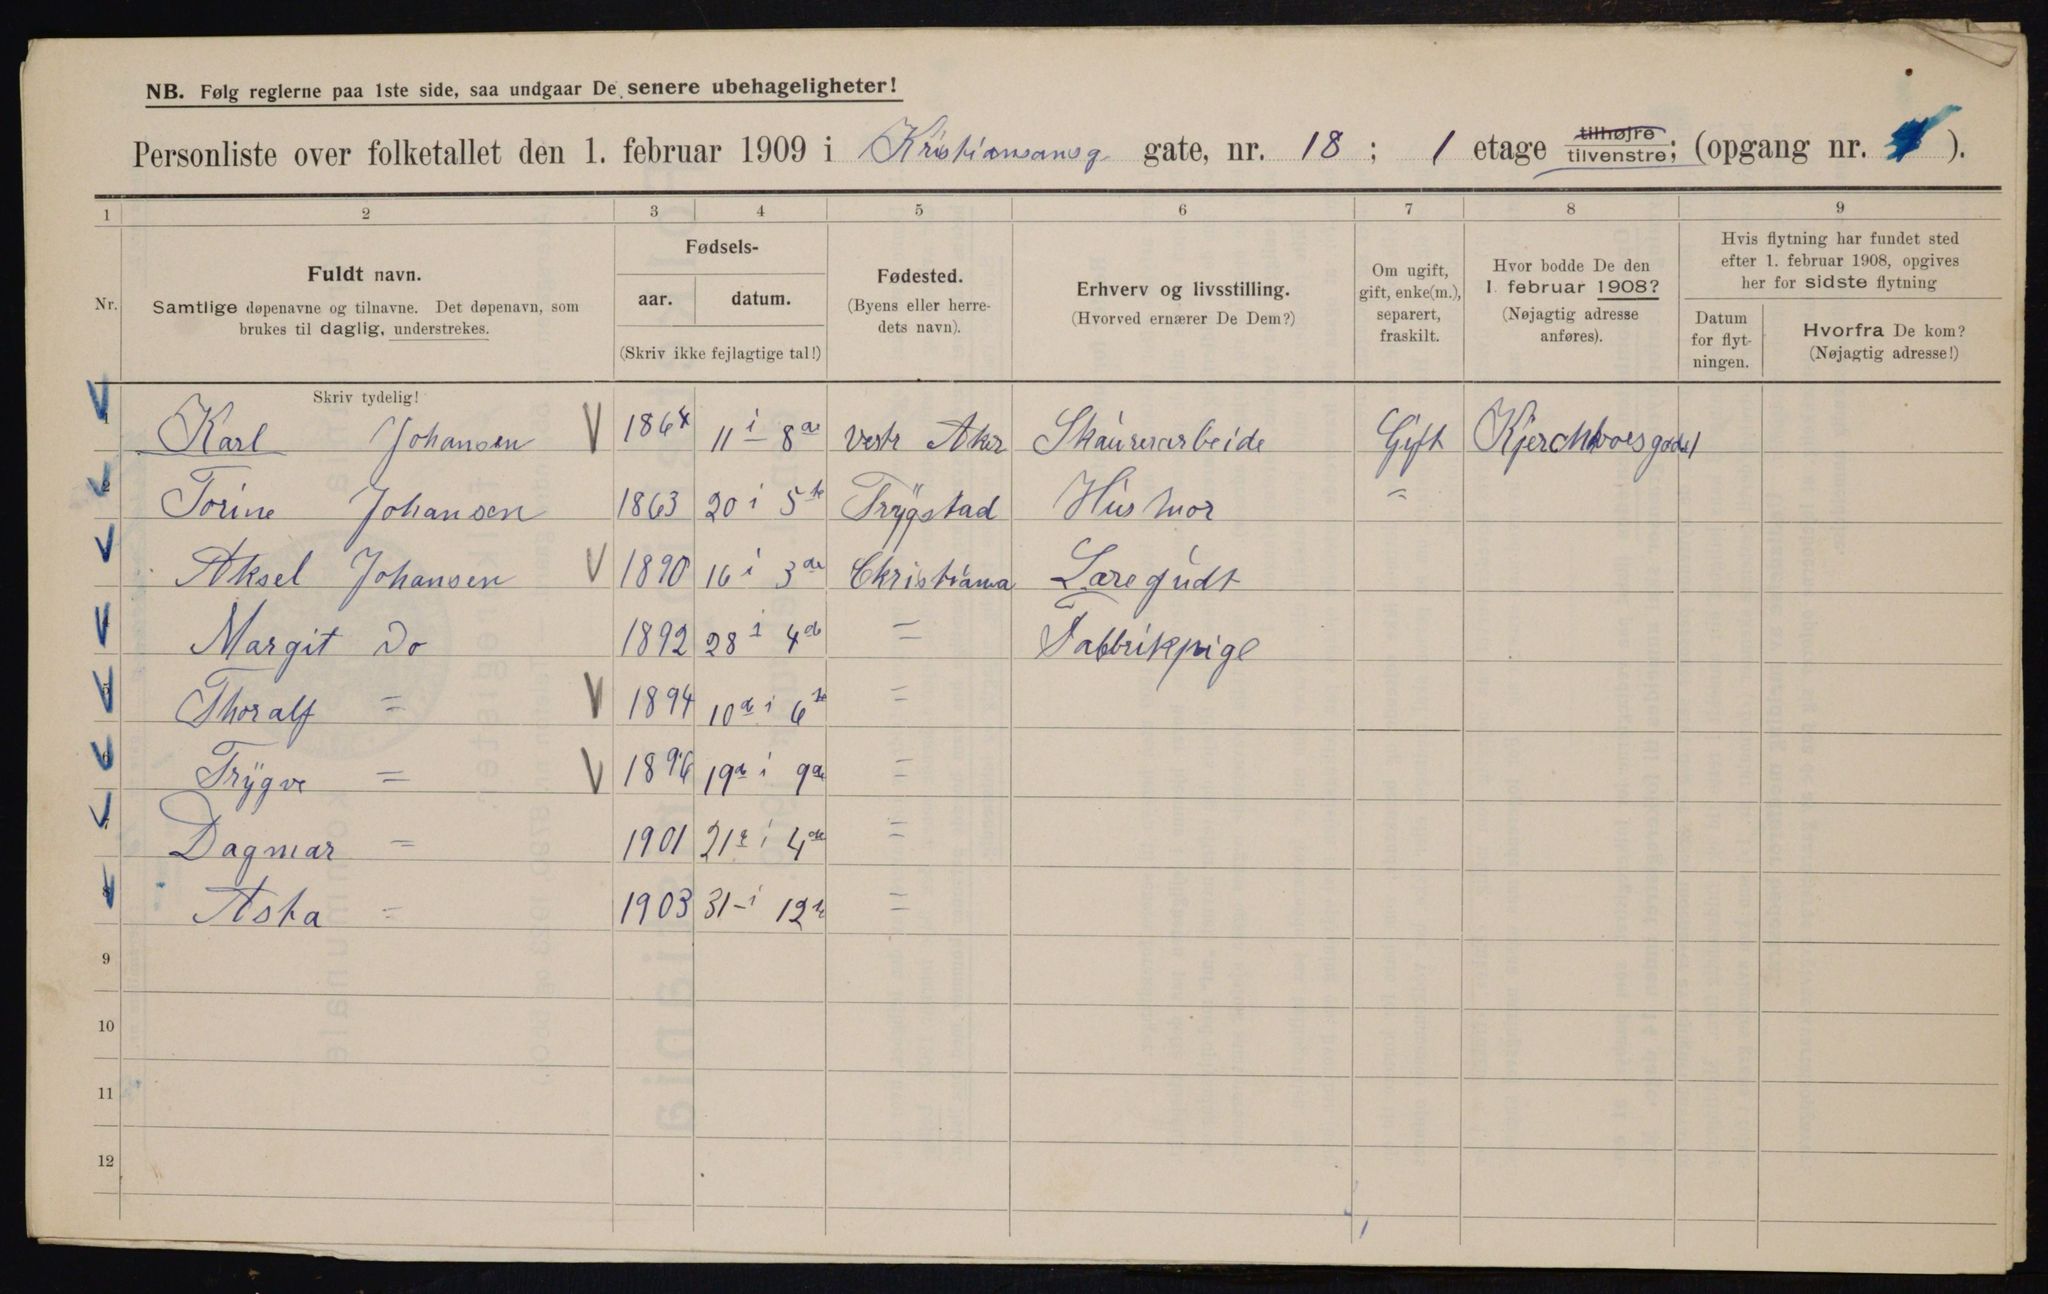 NB. Følg reglerne paa 1ste side, saa undgaar De senere ubehageligheter!
Personliste over folketallet den 1. februar 1909 i Kristiansansg gate, nr. 18 ; 1 etage tilhøjre tilvenstre; (opgang nr. ).
1 2 3 4 5 6 7 8 9
Nr.
Fuldt navn.
Samtlige døpenavne og tilnavne. Det døpenavn, som
brukes til daglig, understrekes.
Skriv tydelig!
Fødsels-
aar. datum.
(Skriv ikke fejlagtige tal!)
Fødested.
(Byens eller herre-
dets navn).
Erhverv og livsstilling.
(Hvorved ernærer De Dem?)
Om ugift,
gift, enke(m.),
separert,
fraskilt.
Hvor bodde De den
1. februar 1908?
(Nøjagtig adresse
anføres).
Hvis flytning har fundet sted
efter 1. februar 1908, opgives
her for sidste flytning
Datum
for flyt-
ningen.
Hvorfra De kom?
(Nøjagtig adresse!)
1 Karl Johansen V 1864 11 i 8de Vestr Aker Skaurerarbeide Gift
2 Torine Johansen 1863 20 i 5te Trygstad Husmor "
Aksel Johansen V 1890 16 i 3de Christiania Læregudt
Margit Do 1892 28 i 4de = Fabbrikpige
5 Thoralf = V 1894 10de i 6te =
6 Trygve = V 1896 19de i 9de =
7 Dagmar = 1901 21de i 4de =
8 Asta = 1903 31- i 12te =
9
10
11
12